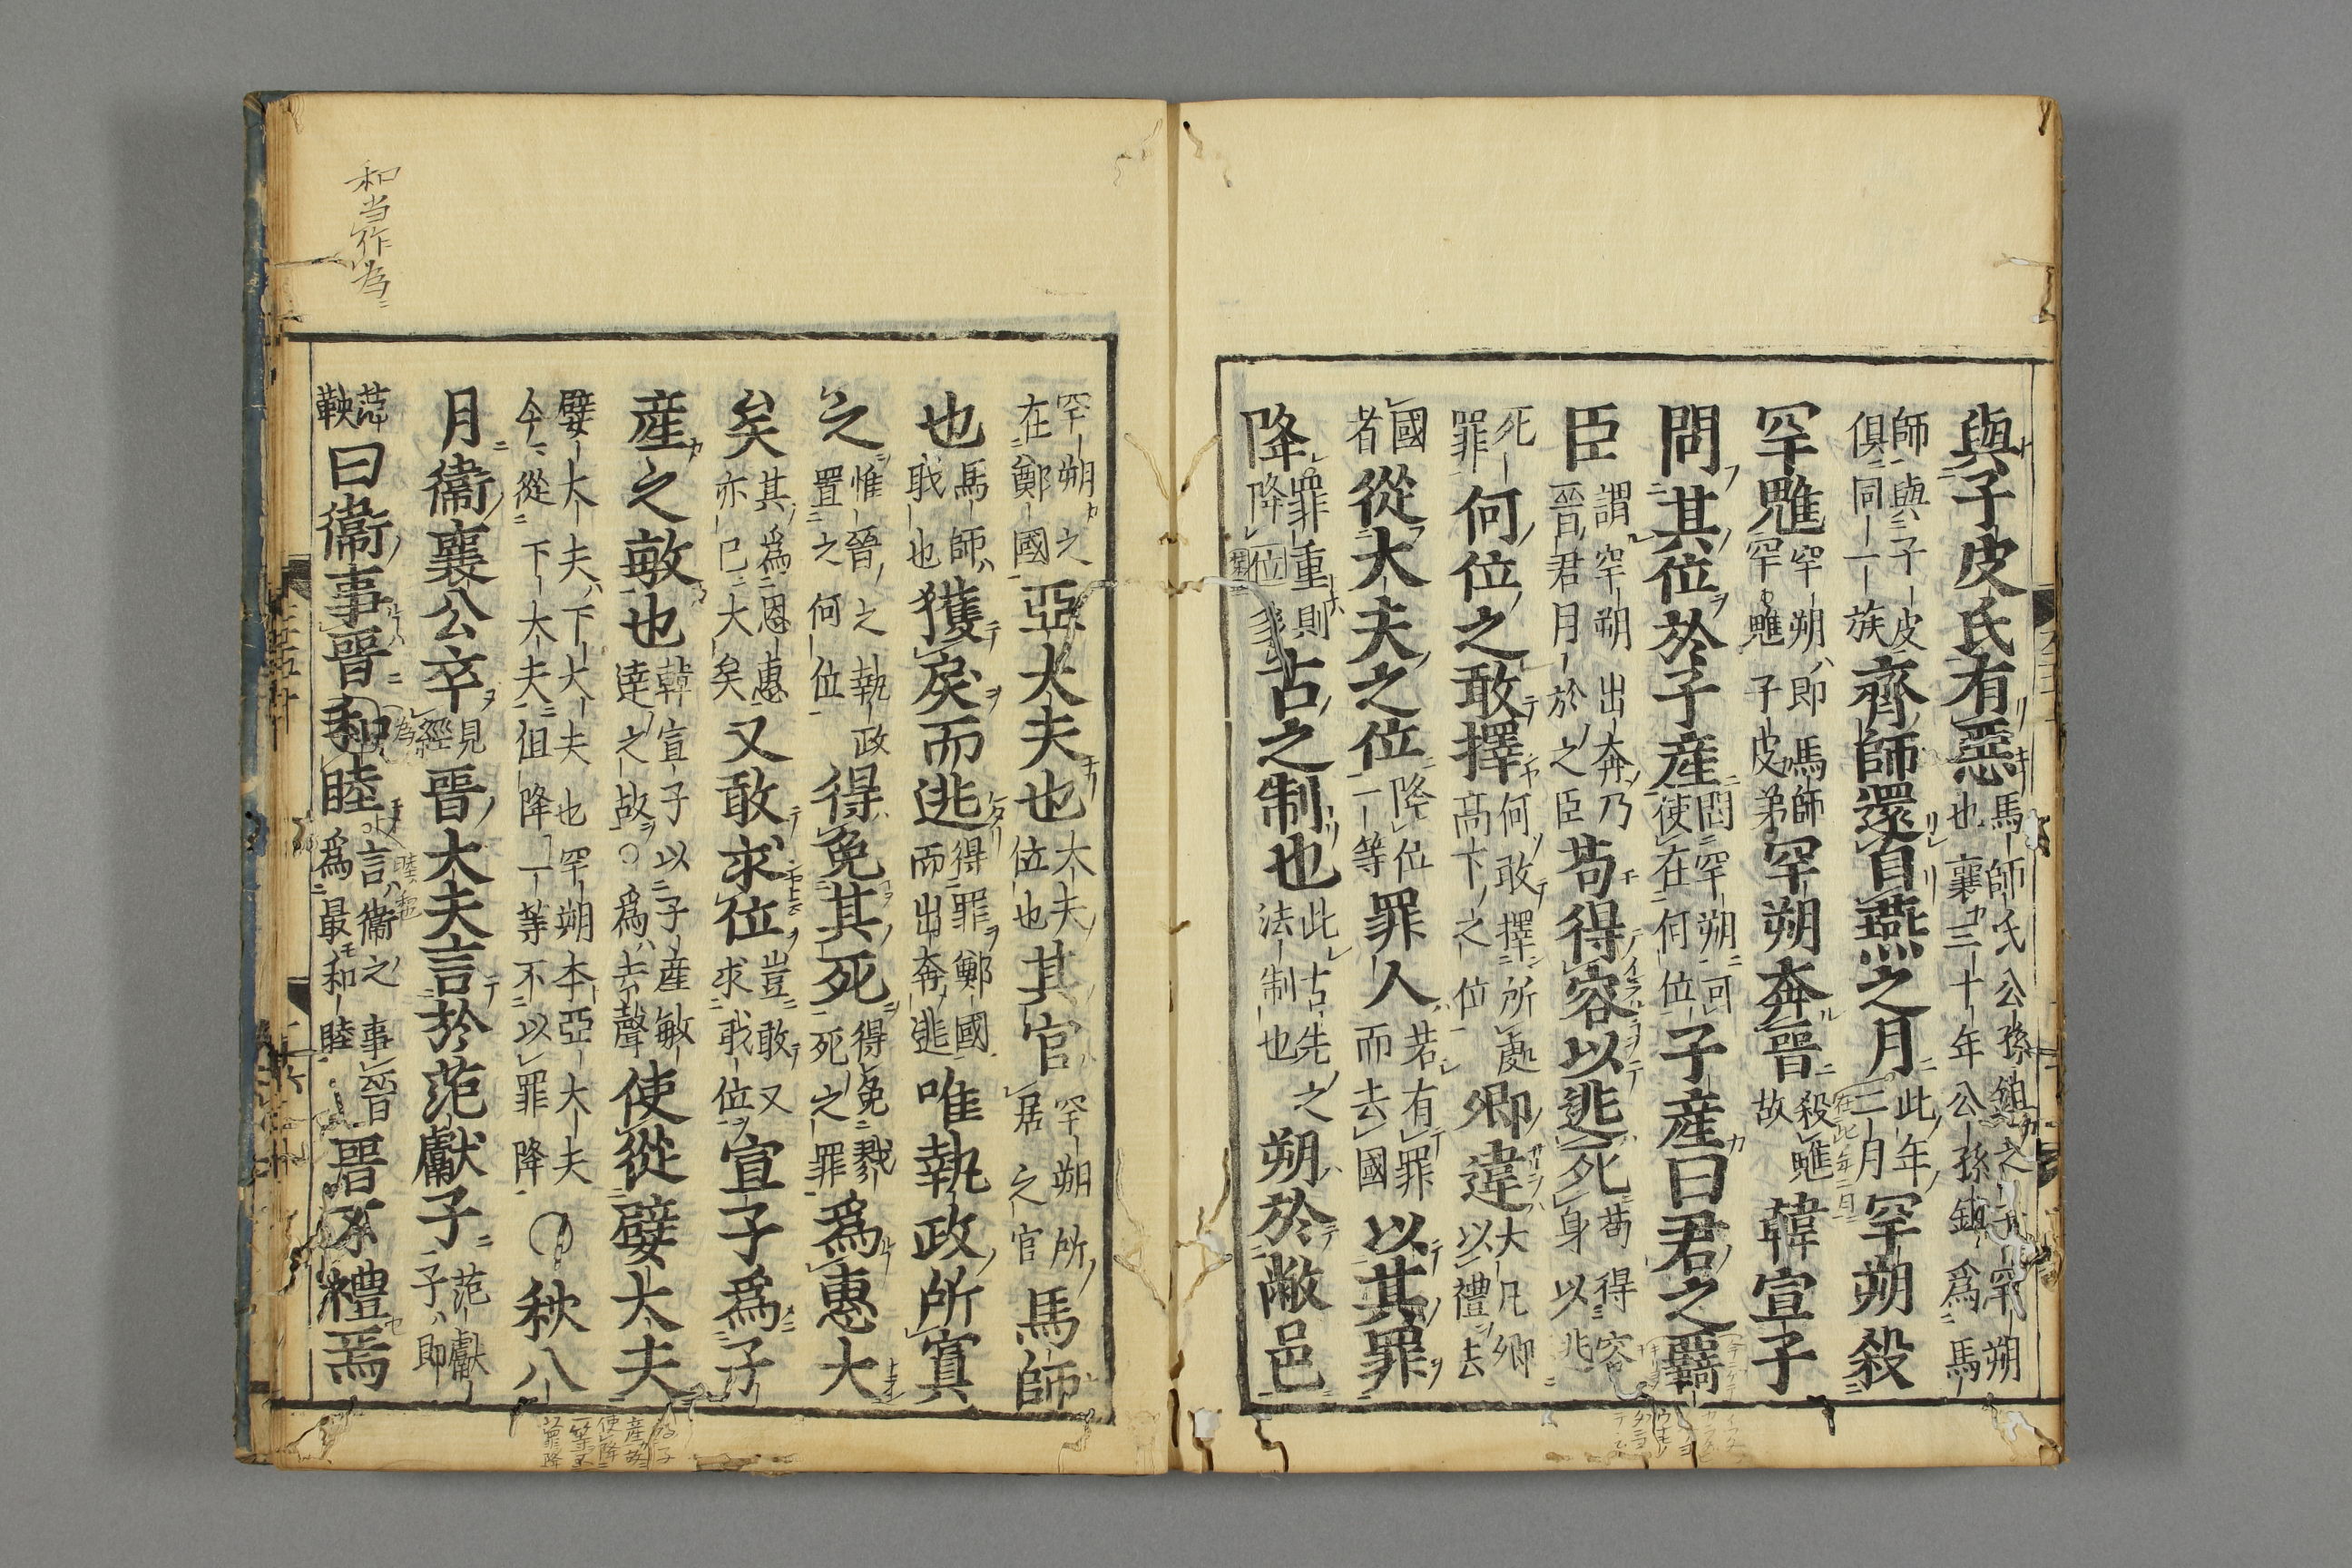 與子皮氏有惡馬師氏公孫鉏之子罕朔也襄三十年公孫鉏爲馬
師與子皮俱同一族齊師還自燕之月此年二月罕朔殺
罕魋罕朔即馬師罕魋子皮弟罕朔奔晉殺魋故韓宣子
問其位於子産問罕朔可使在何位子産曰君之羇
臣謂罕朔出奔乃晉君月於之臣苟得容以逃死苟得容身以逃
死罪何位之敢擇何敢擇所處高下之位卿違大凡卿以禮去
國者從大夫之位降位一等罪人若有罪而去國以其罪
降罪重則降位多古之制也此古先之法制也朔於敝邑
罕朔之在鄭國亞大夫也大夫位也其官罕朔所居之官馬師
也馬師職也獲戾而逃得罪鄭國而出奔逃唯執政所寘
之惟晉之執政置之何位得免其死得免戮死之罪爲惠大
矣其爲恩惠亦已大矣又敢求位豈敢又求職位宣子爲子
産之敏也韓宣子以子産敏達之故○爲去聲使從嬖大夫
嬖大夫下大夫也罕朔本亞大夫今從下大夫但降一等不以罪降○秋八
月衞襄公卒見經晉大夫言於范獻子范獻子即
范鞅曰衞事晉和睦言衞之事晉爲最和睦晉不禮焉
和当作為